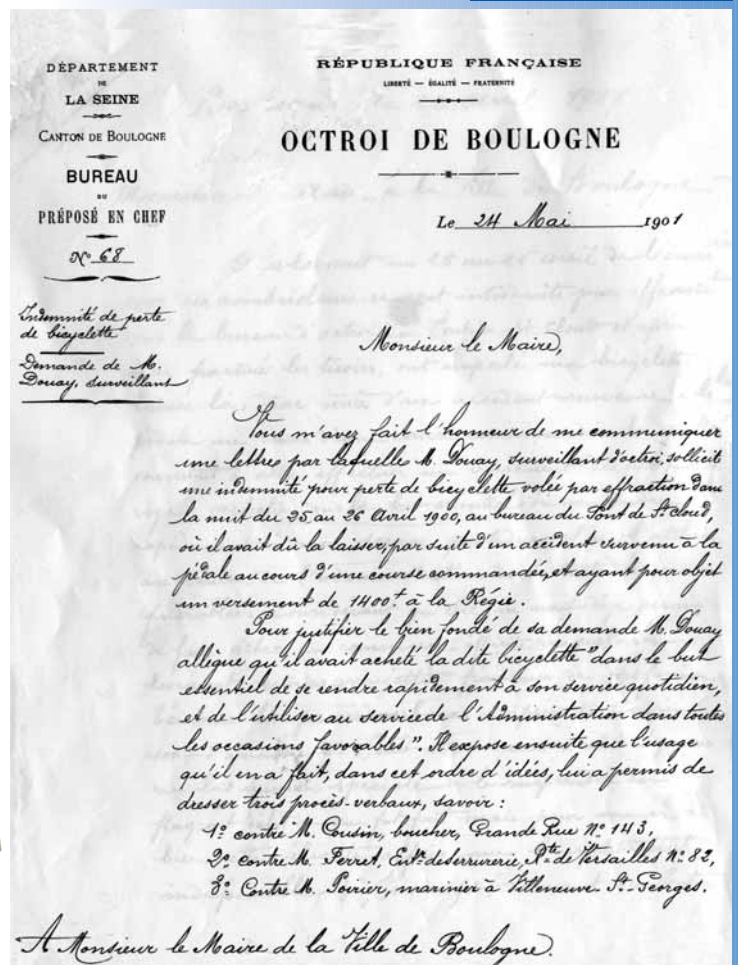 DÉPARTEMENT
DE
LA SEINE
CANTON DE BOULOGNE
BUREAU
DU
PRÉPOSÉ EN CHEF
N° 68
Indemnité de perte
de bicyclette
Demande de M.
Douay, surveillant
RÉPUBLIQUE FRANÇAISE
LIBERTÉ — ÉGALITÉ — FRATERNITÉ
OCTROI DE BOULOGNE
Le 24 Mai 1901
Monsieur le Maire,
Vous m'avez fait l'honneur de me communiquer
une lettre par laquelle M. Douay, surveillant d'octroi, sollicit
une indemnité pour perte de bicyclette volée par effraction dans
la nuit du 25 au 26 Avril 1900, au bureau du Pont de St. Cloud,
où il avait dû la laisser, par suite d'un accident survenu à la
pédale au cours d'une course commandée, et ayant pour objet
un versement de 1400f à la Régie.
Pour justifier le bien fondé de sa demande M. Douay
allègue qu'il avait acheté la dite bicyclette "dans le but
essentiel de se rendre rapidement à son service quotidien,
et de l'utiliser au service de l'Administration dans toutes
les occasions favorables". Il expose ensuite que l'usage
qu'il en a fait, dans cet ordre d'idées, lui a permis de
dresser trois procès-verbaux, savoir :
1° contre M. Cousin, boucher, Grande Rue N° 143,
2° contre M. Ferret, Entr. de serrurerie, Rte de Versailles N° 82,
3° Contre M. Poirier, marinier à Villeneuve St. Georges.
A Monsieur le Maire de la Ville de Boulogne.